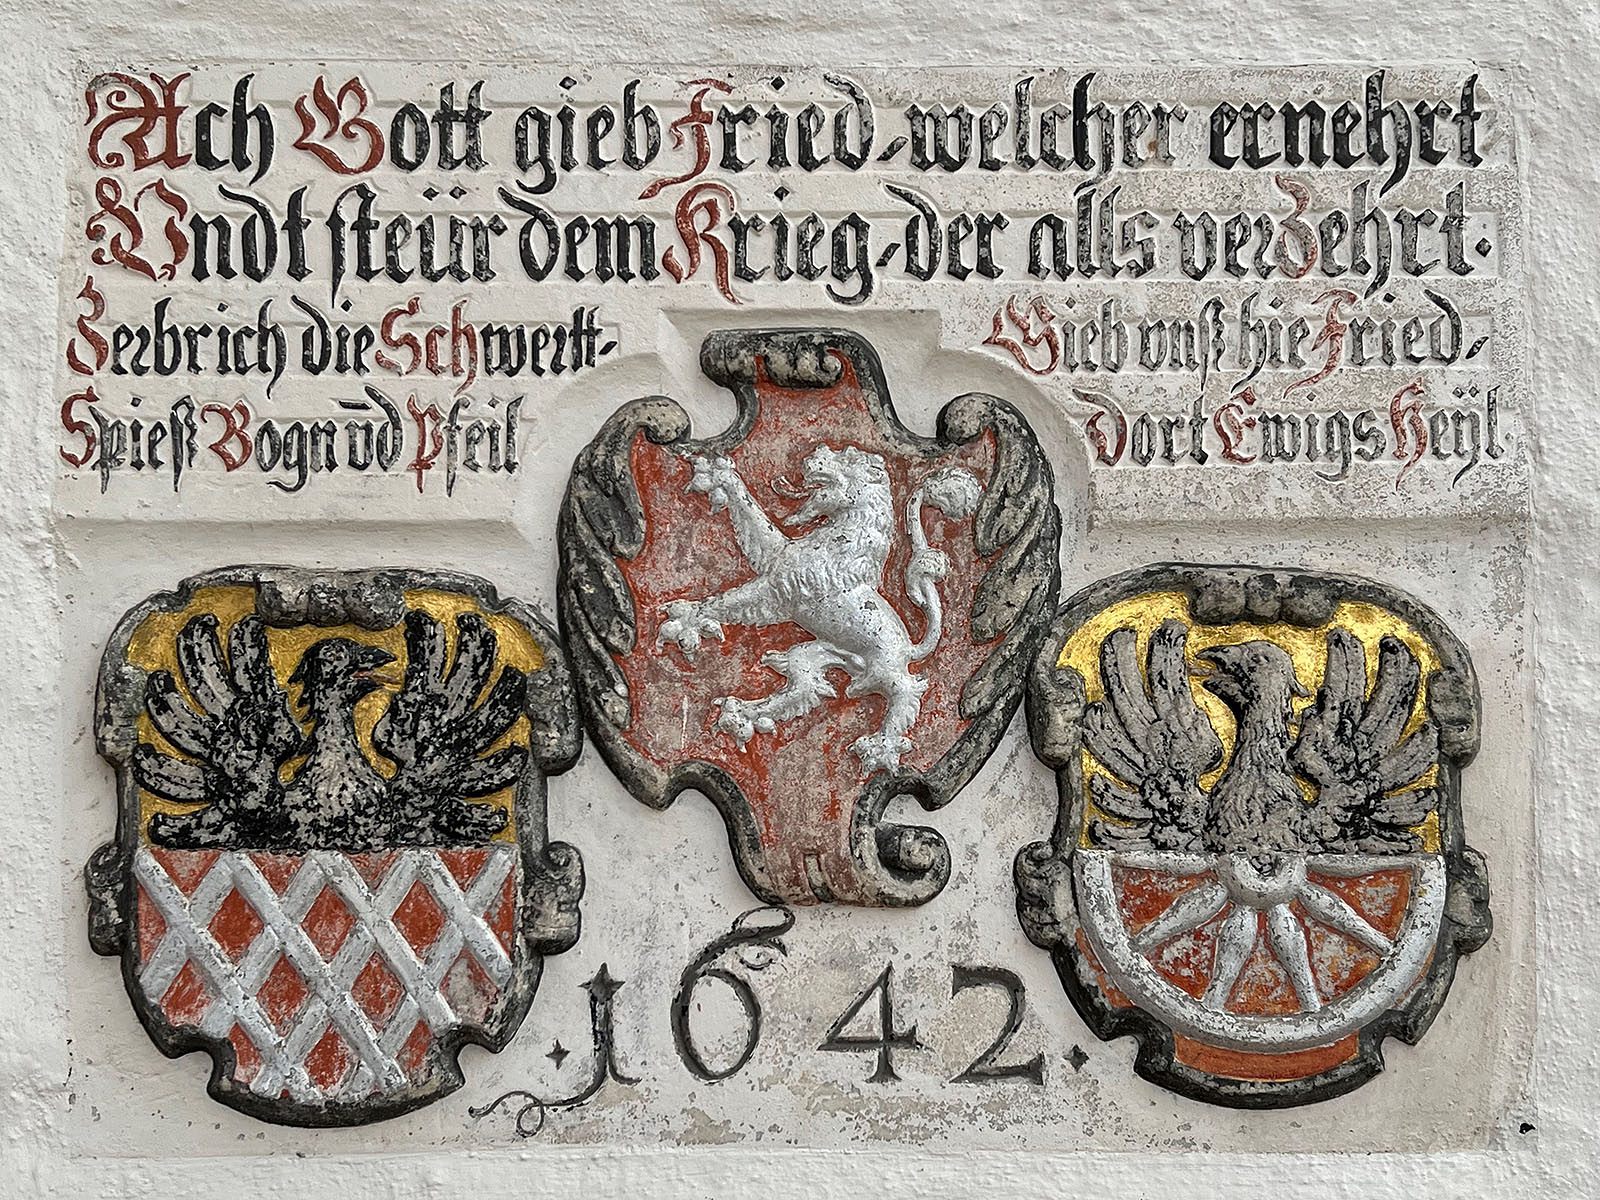 Ach Gott gieb Fried, welcher ernehrt
Vndt steür dem Krieg, der alls verzehrt.
Zerbrich die Schwertt,
Spieß Bogn v̄d Pfeil
Gieb vnß hie Fried,
dort Ewigs Heÿl
1642.